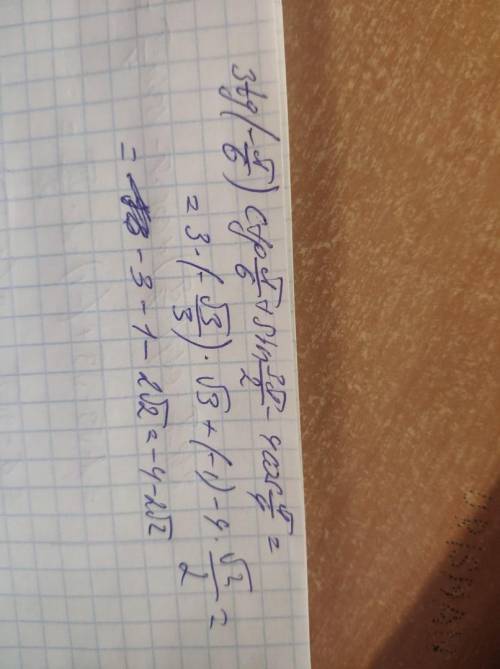 3tg(-π/6) ctg π/6 + sin 3π/2 - 4cos π/4 =
= 3·(-√3/3)·√3 + (-1) - 4·√2/2 =
= -3 - 1 - 2√2 = -4 - 2√2